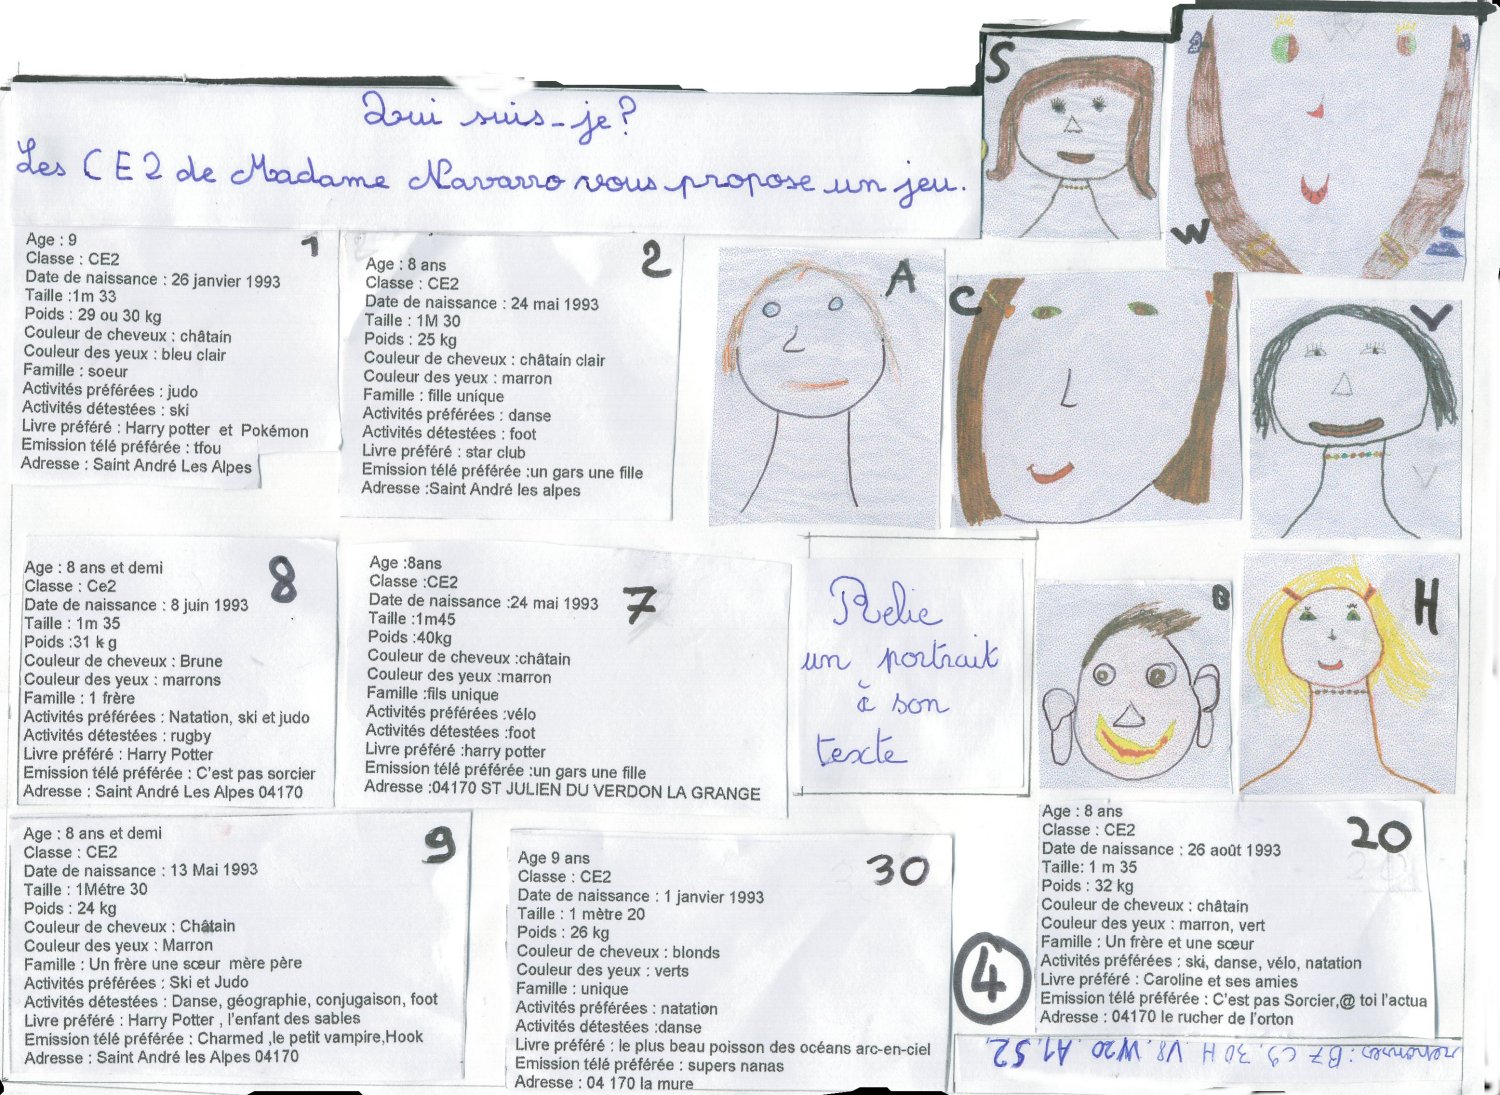 Qui suis-je?
Les CE2 de Madame Navarro vous propose un jeu.
S
W
1
Age : 9
Classe : CE2
Date de naissance : 26 janvier 1993
Taille :1m 33
Poids : 29 ou 30 kg
Couleur de cheveux : châtain
Couleur des yeux : bleu clair
Famille : soeur
Activités préférées : judo
Activités détestées : ski
Livre préféré : Harry potter et Pokémon
Emission télé préférée : tfou
Adresse : Saint André Les Alpes
2
Age : 8 ans
Classe : CE2
Date de naissance : 24 mai 1993
Taille : 1M 30
Poids : 25 kg
Couleur de cheveux : châtain clair
Couleur des yeux : marron
Famille : fille unique
Activités préférées : danse
Activités détestées : foot
Livre préféré : star club
Emission télé préférée :un gars une fille
Adresse :Saint André les alpes
A
C
V
V
8
Age : 8 ans et demi
Classe : Ce2
Date de naissance : 8 juin 1993
Taille : 1m 35
Poids :31 k g
Couleur de cheveux : Brune
Couleur des yeux : marrons
Famille : 1 frère
Activités préférées : Natation, ski et judo
Activités détestées : rugby
Livre préféré : Harry Potter
Emission télé préférée : C'est pas sorcier
Adresse : Saint André Les Alpes 04170
7
Age :8ans
Classe :CE2
Date de naissance :24 mai 1993
Taille :1m45
Poids :40kg
Couleur de cheveux :châtain
Couleur des yeux :marron
Famille :fils unique
Activités préférées :vélo
Activités détestées :foot
Livre préféré :harry potter
Emission télé préférée :un gars une fille
Adresse :04170 ST JULIEN DU VERDON LA GRANGE
Relie
un portrait
à son
texte
B
H
9
Age : 8 ans et demi
Classe : CE2
Date de naissance : 13 Mai 1993
Taille : 1Métre 30
Poids : 24 kg
Couleur de cheveux : Châtain
Couleur des yeux : Marron
Famille : Un frère une sœur mère père
Activités préférées : Ski et Judo
Activités détestées : Danse, géographie, conjugaison, foot
Livre préféré : Harry Potter , l'enfant des sables
Emission télé préférée : Charmed ,le petit vampire,Hook
Adresse : Saint André les Alpes 04170
30
Age 9 ans
Classe : CE2
Date de naissance : 1 janvier 1993
Taille : 1 mètre 20
Poids : 26 kg
Couleur de cheveux : blonds
Couleur des yeux : verts
Famille : unique
Activités préférées : natation
Activités détestées :danse
Livre préféré : le plus beau poisson des océans arc-en-ciel
Emission télé préférée : supers nanas
Adresse : 04 170 la mure
4
20
Age : 8 ans
Classe : CE2
Date de naissance : 26 août 1993
Taille: 1 m 35
Poids : 32 kg
Couleur de cheveux : châtain
Couleur des yeux : marron, vert
Famille : Un frère et une sœur
Activités préférées : ski, danse, vélo, natation
Livre préféré : Caroline et ses amies
Emission télé préférée : C'est pas Sorcier,@ toi l'actua
Adresse : 04170 le rucher de l'orton
réponses: B7 C9. 30 H V8. W20. A1. S2.